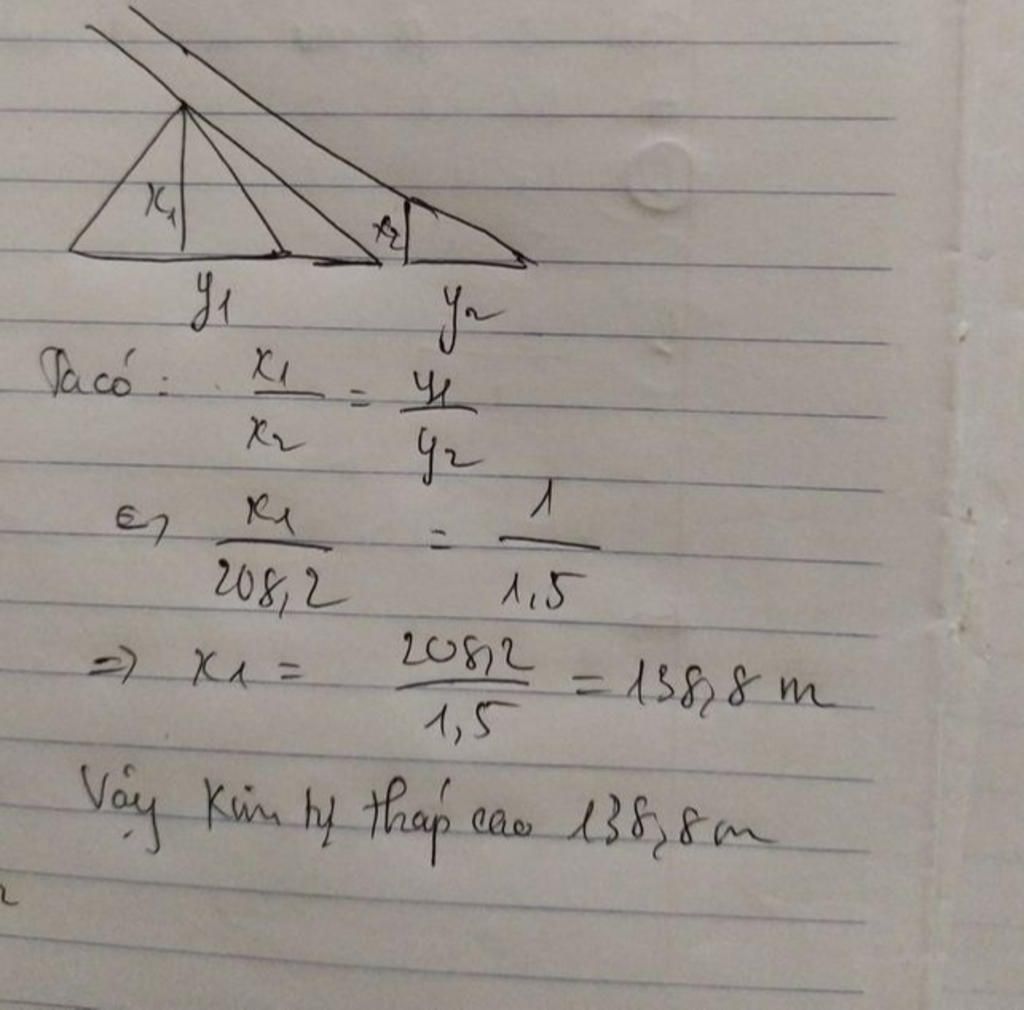 x₁
x₂
y₁ y₂
Ta có : x₁/x₂ = y₁/y₂
⇔ x₁/208,2 = 1/1,5
=> x₁ = 208,2/1,5 = 138,8 m
Vậy Kim tự tháp cao 138,8m